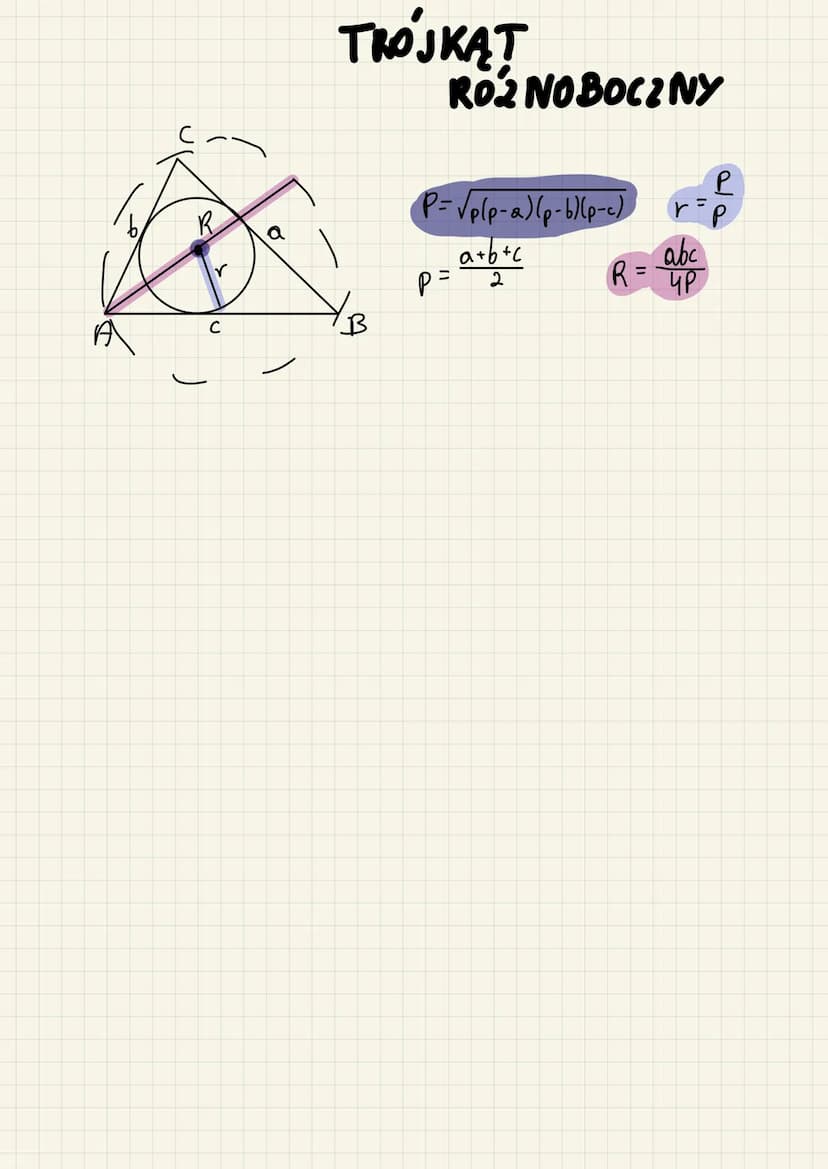 TRÓJKĄT
RÓŻNOBOCZNY
C
b
R
a
r
A
c
B
P=√p(p-a)(p-b)(p-c)
r = P/p
p = a+b+c/2
R = abc/4P